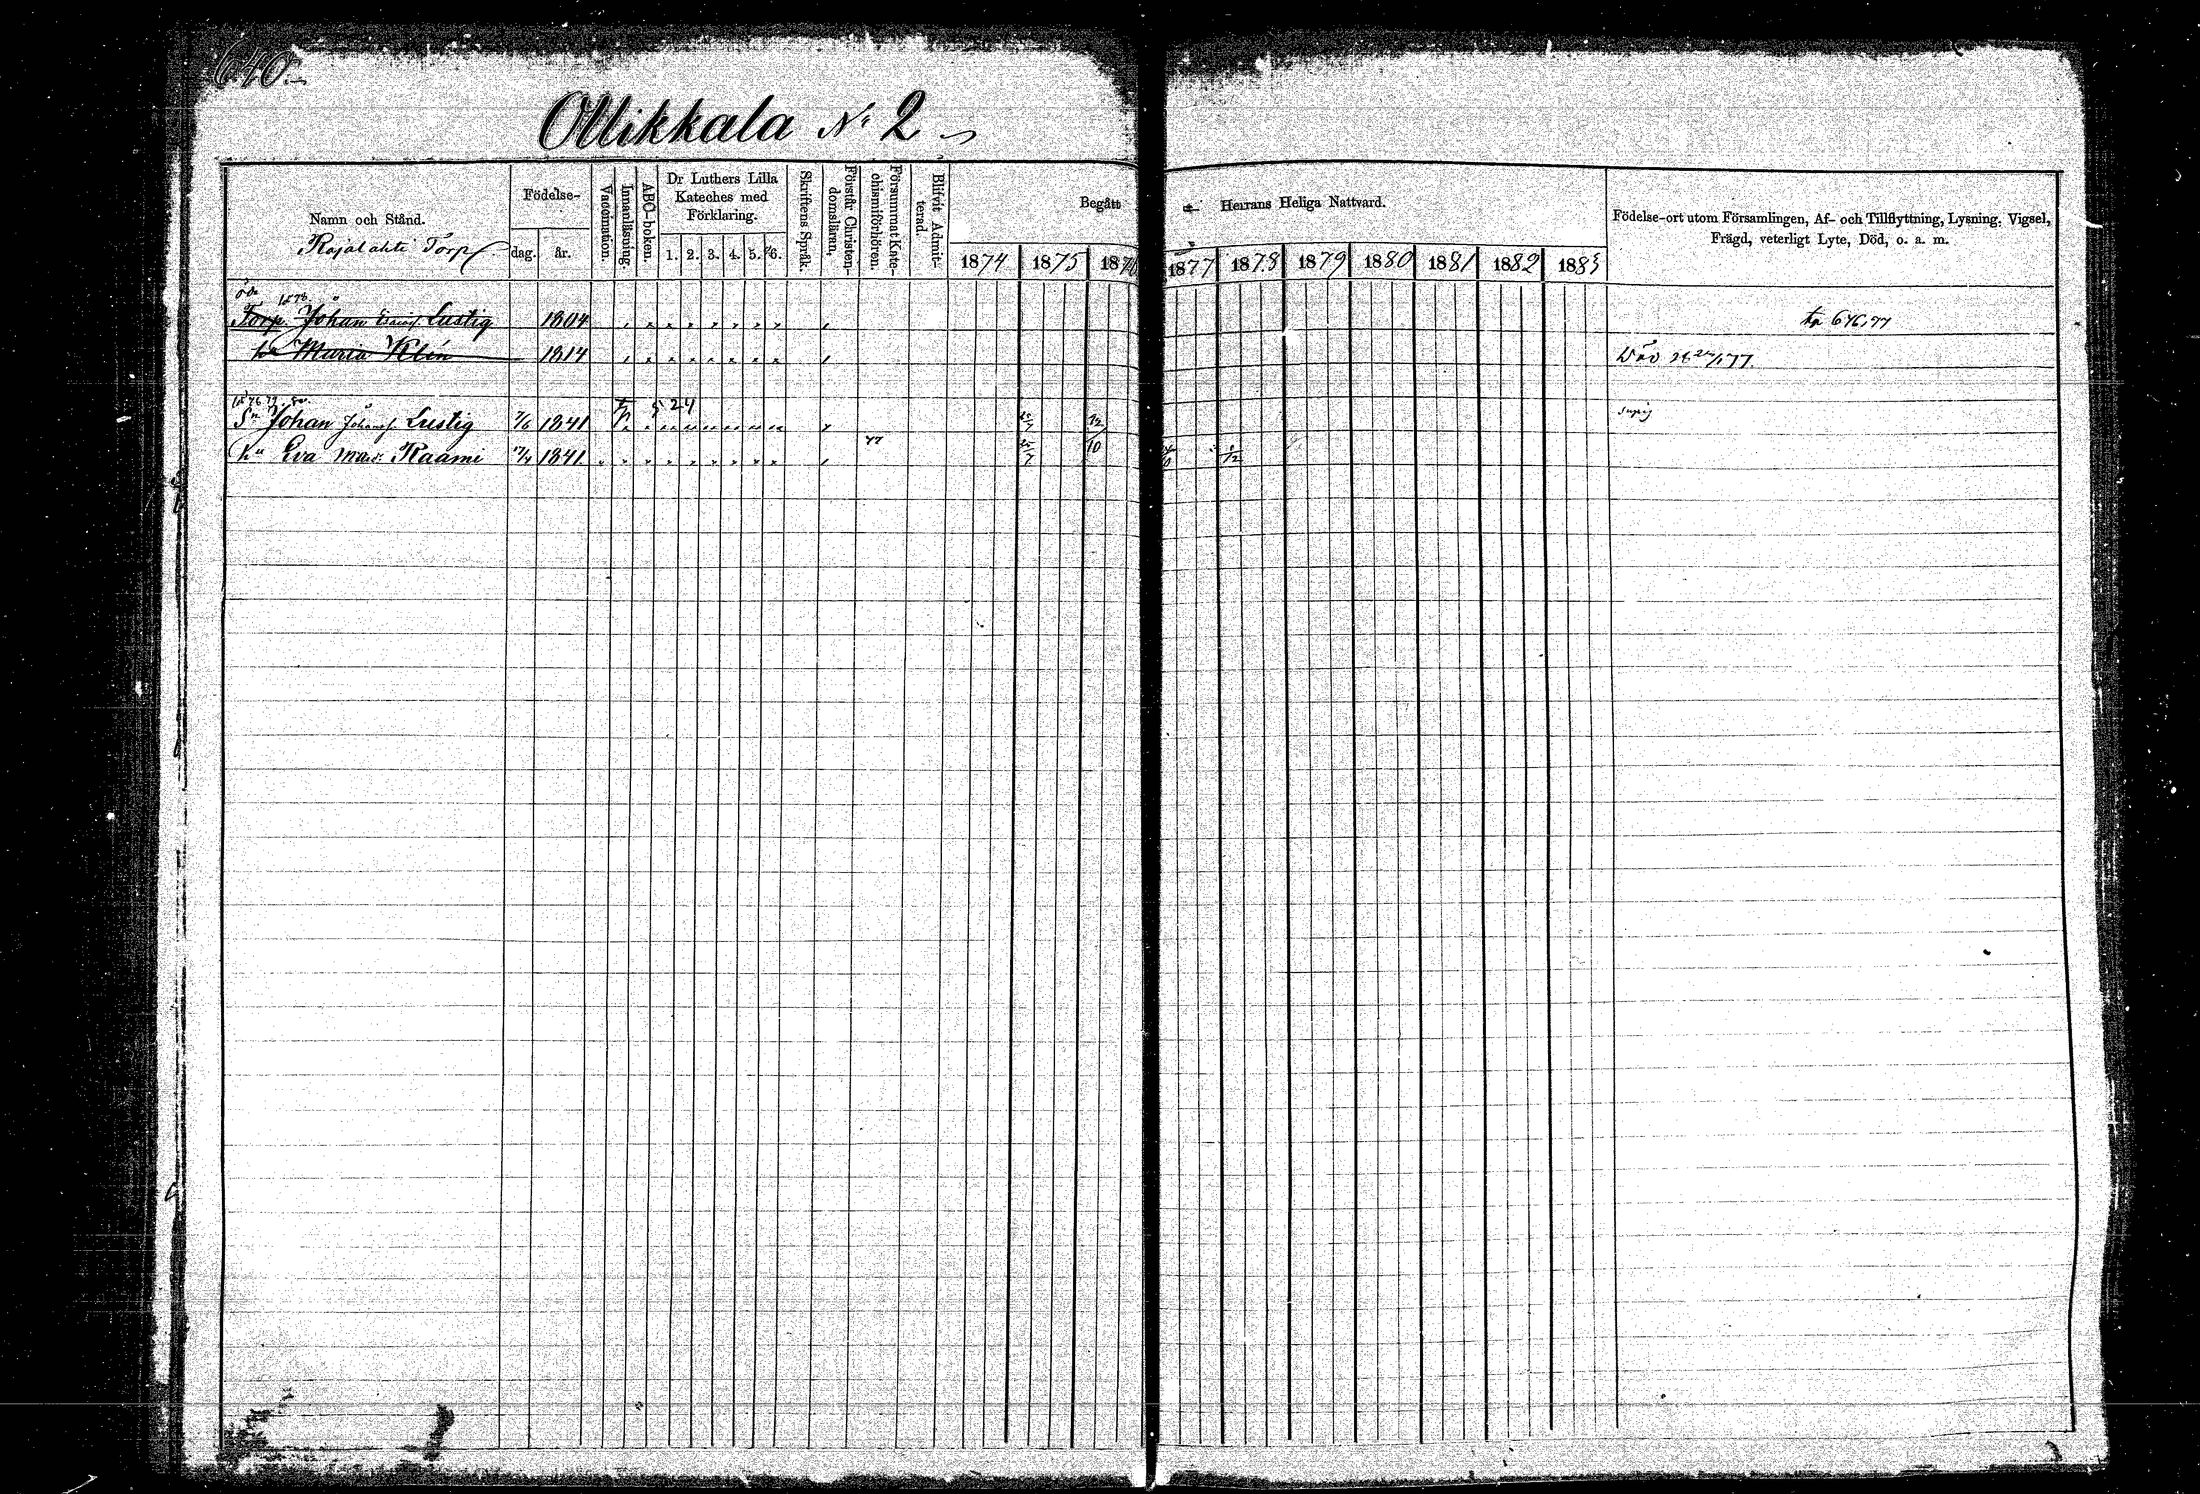 640.
Ollikkala No 2
Namn och Stånd.
Rojalahti Torp.
Födelse-
dag. år.
Vaccination.
Innanläsning.
ABC-boken.
Dr Luthers Lilla
Kateches med
Förklaring.
1. 2. 3. 4. 5. 6.
Skriftens Språk.
Förstår Christen-
domsläran,
Försummat Kate-
chismiförhören.
Blifvit Admit-
terad.
Begått Herrans Heliga Nattvard.
1874 1875 1876 1877 1878 1879 1880 1881 1882 1883
Födelse-ort utom Församlingen, Af- och Tillflyttning, Lysning, Vigsel,
Frägd, veterligt Lyte, Död, o. a. m.
Torp. Johan Lustig 1804 tp 676,77
Maria Klén 1814 Död 77.
Sn Johan Johansf. Lustig 7/6 1841
hu Eva Raami 17/4 1841. 77 1/12